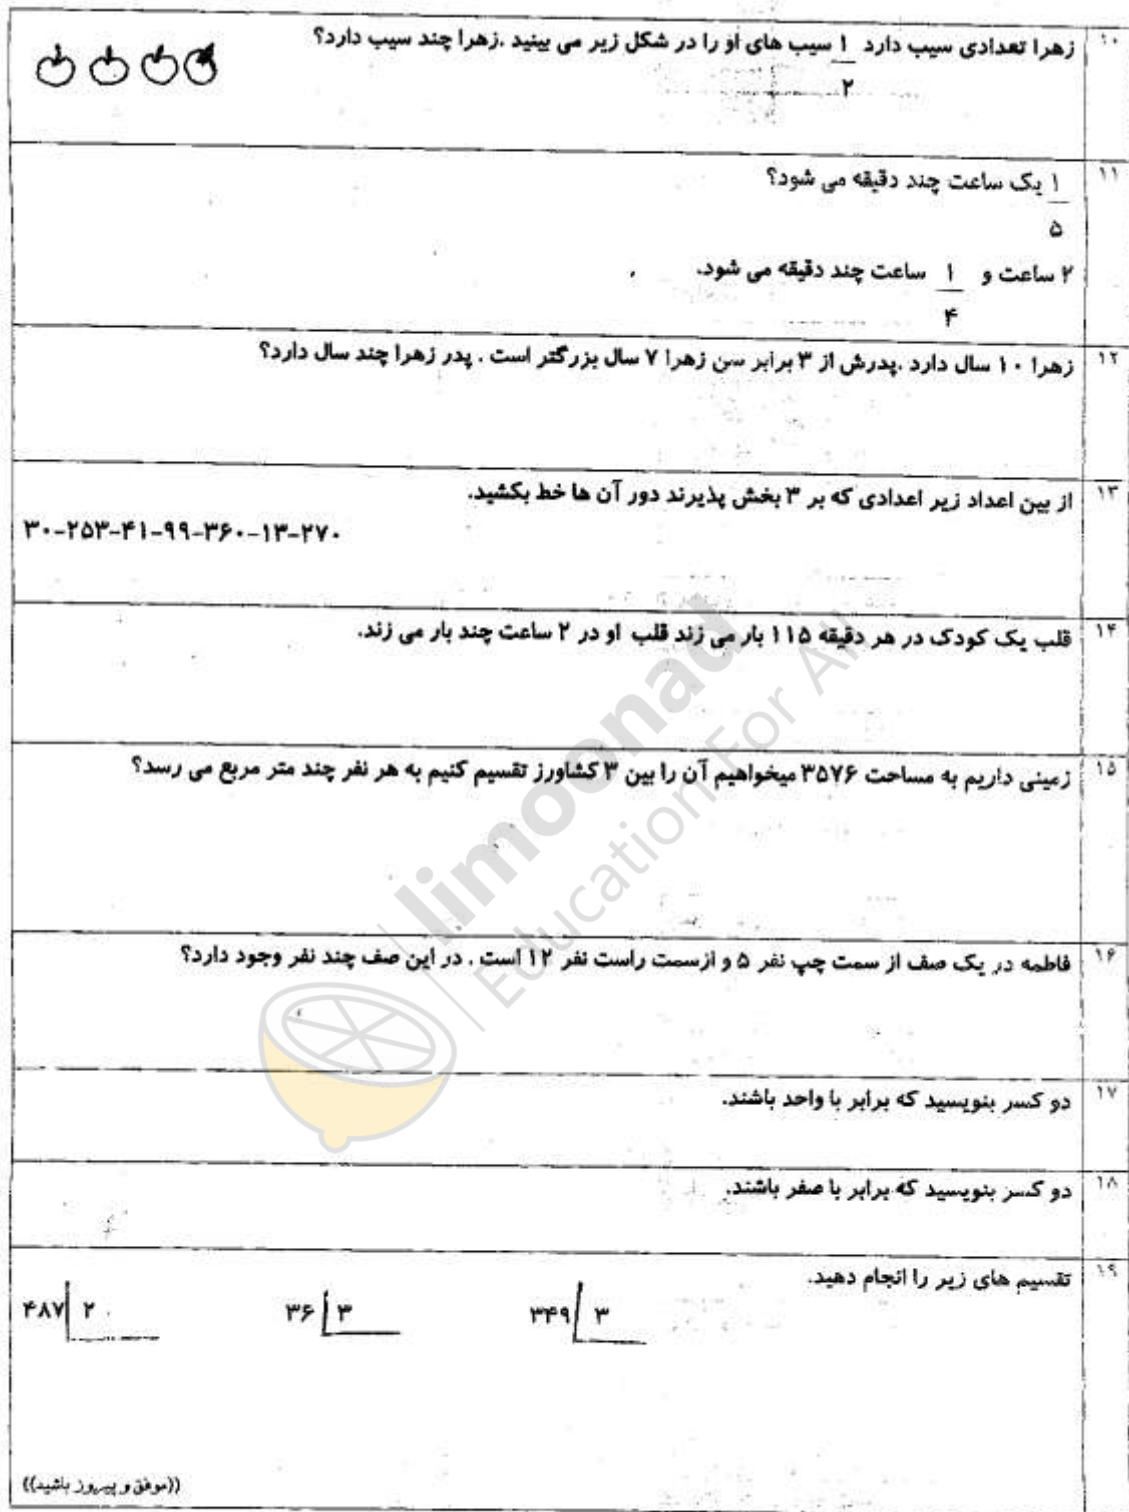 ۱۰ زهرا تعدادی سیب دارد ۱/۲ سیب های او را در شکل زیر می بینید .زهرا چند سیب دارد؟
۱۱ ۱/۵ یک ساعت چند دقیقه می شود؟
۲ ساعت و ۱/۴ ساعت چند دقیقه می شود.
۱۲ زهرا ۱۰ سال دارد .پدرش از ۳ برابر سن زهرا ۷ سال بزرگتر است . پدر زهرا چند سال دارد؟
۱۳ از بین اعداد زیر اعدادی که بر ۳ بخش پذیرند دور آن ها خط بکشید.
۳۰-۲۵۳-۴۱-۹۹-۳۶۰-۱۳-۲۷۰
۱۴ قلب یک کودک در هر دقیقه ۱۱۵ بار می زند قلب او در ۲ ساعت چند بار می زند.
۱۵ زمینی داریم به مساحت ۳۵۷۶ میخواهیم آن را بین ۳ کشاورز تقسیم کنیم به هر نفر چند متر مربع می رسد؟
limoonad
Education For All
۱۶ فاطمه در یک صف از سمت چپ نفر ۵ و ازسمت راست نفر ۱۲ است . در این صف چند نفر وجود دارد؟
۱۷ دو کسر بنویسید که برابر با واحد باشند.
۱۸ دو کسر بنویسید که برابر با صفر باشند.
۱۹ تقسیم های زیر را انجام دهید.
۳۴۹ ۳ ۳۶ ۳ ۴۸۷ ۲
((موفق و پیروز باشید))